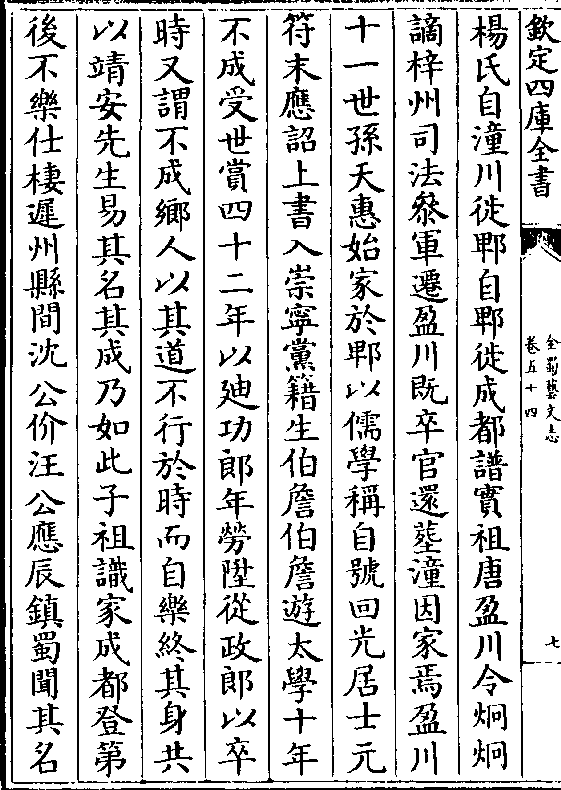 欽定四庫全書
全蜀藝文志
卷五十四
七
楊氏自潼川徙郫自郫徙成都譜實祖唐盈川令炯炯
謫梓州司法叅軍遷盈川既卒官還塟潼因家焉盈川
十一世孫天惠始家於郫以儒學稱自號回光居士元
符末應詔上書入崇寧黨籍生伯詹伯詹遊太學十年
不成受世賞四十二年以廸功郎年勞陞從政郎以卒
時又謂不成鄉人以其道不行於時而自樂終其身共
以靖安先生易其名其成乃如此子祖識家成都登第
後不樂仕棲遲州縣間沈公价汪公應辰鎮蜀聞其名